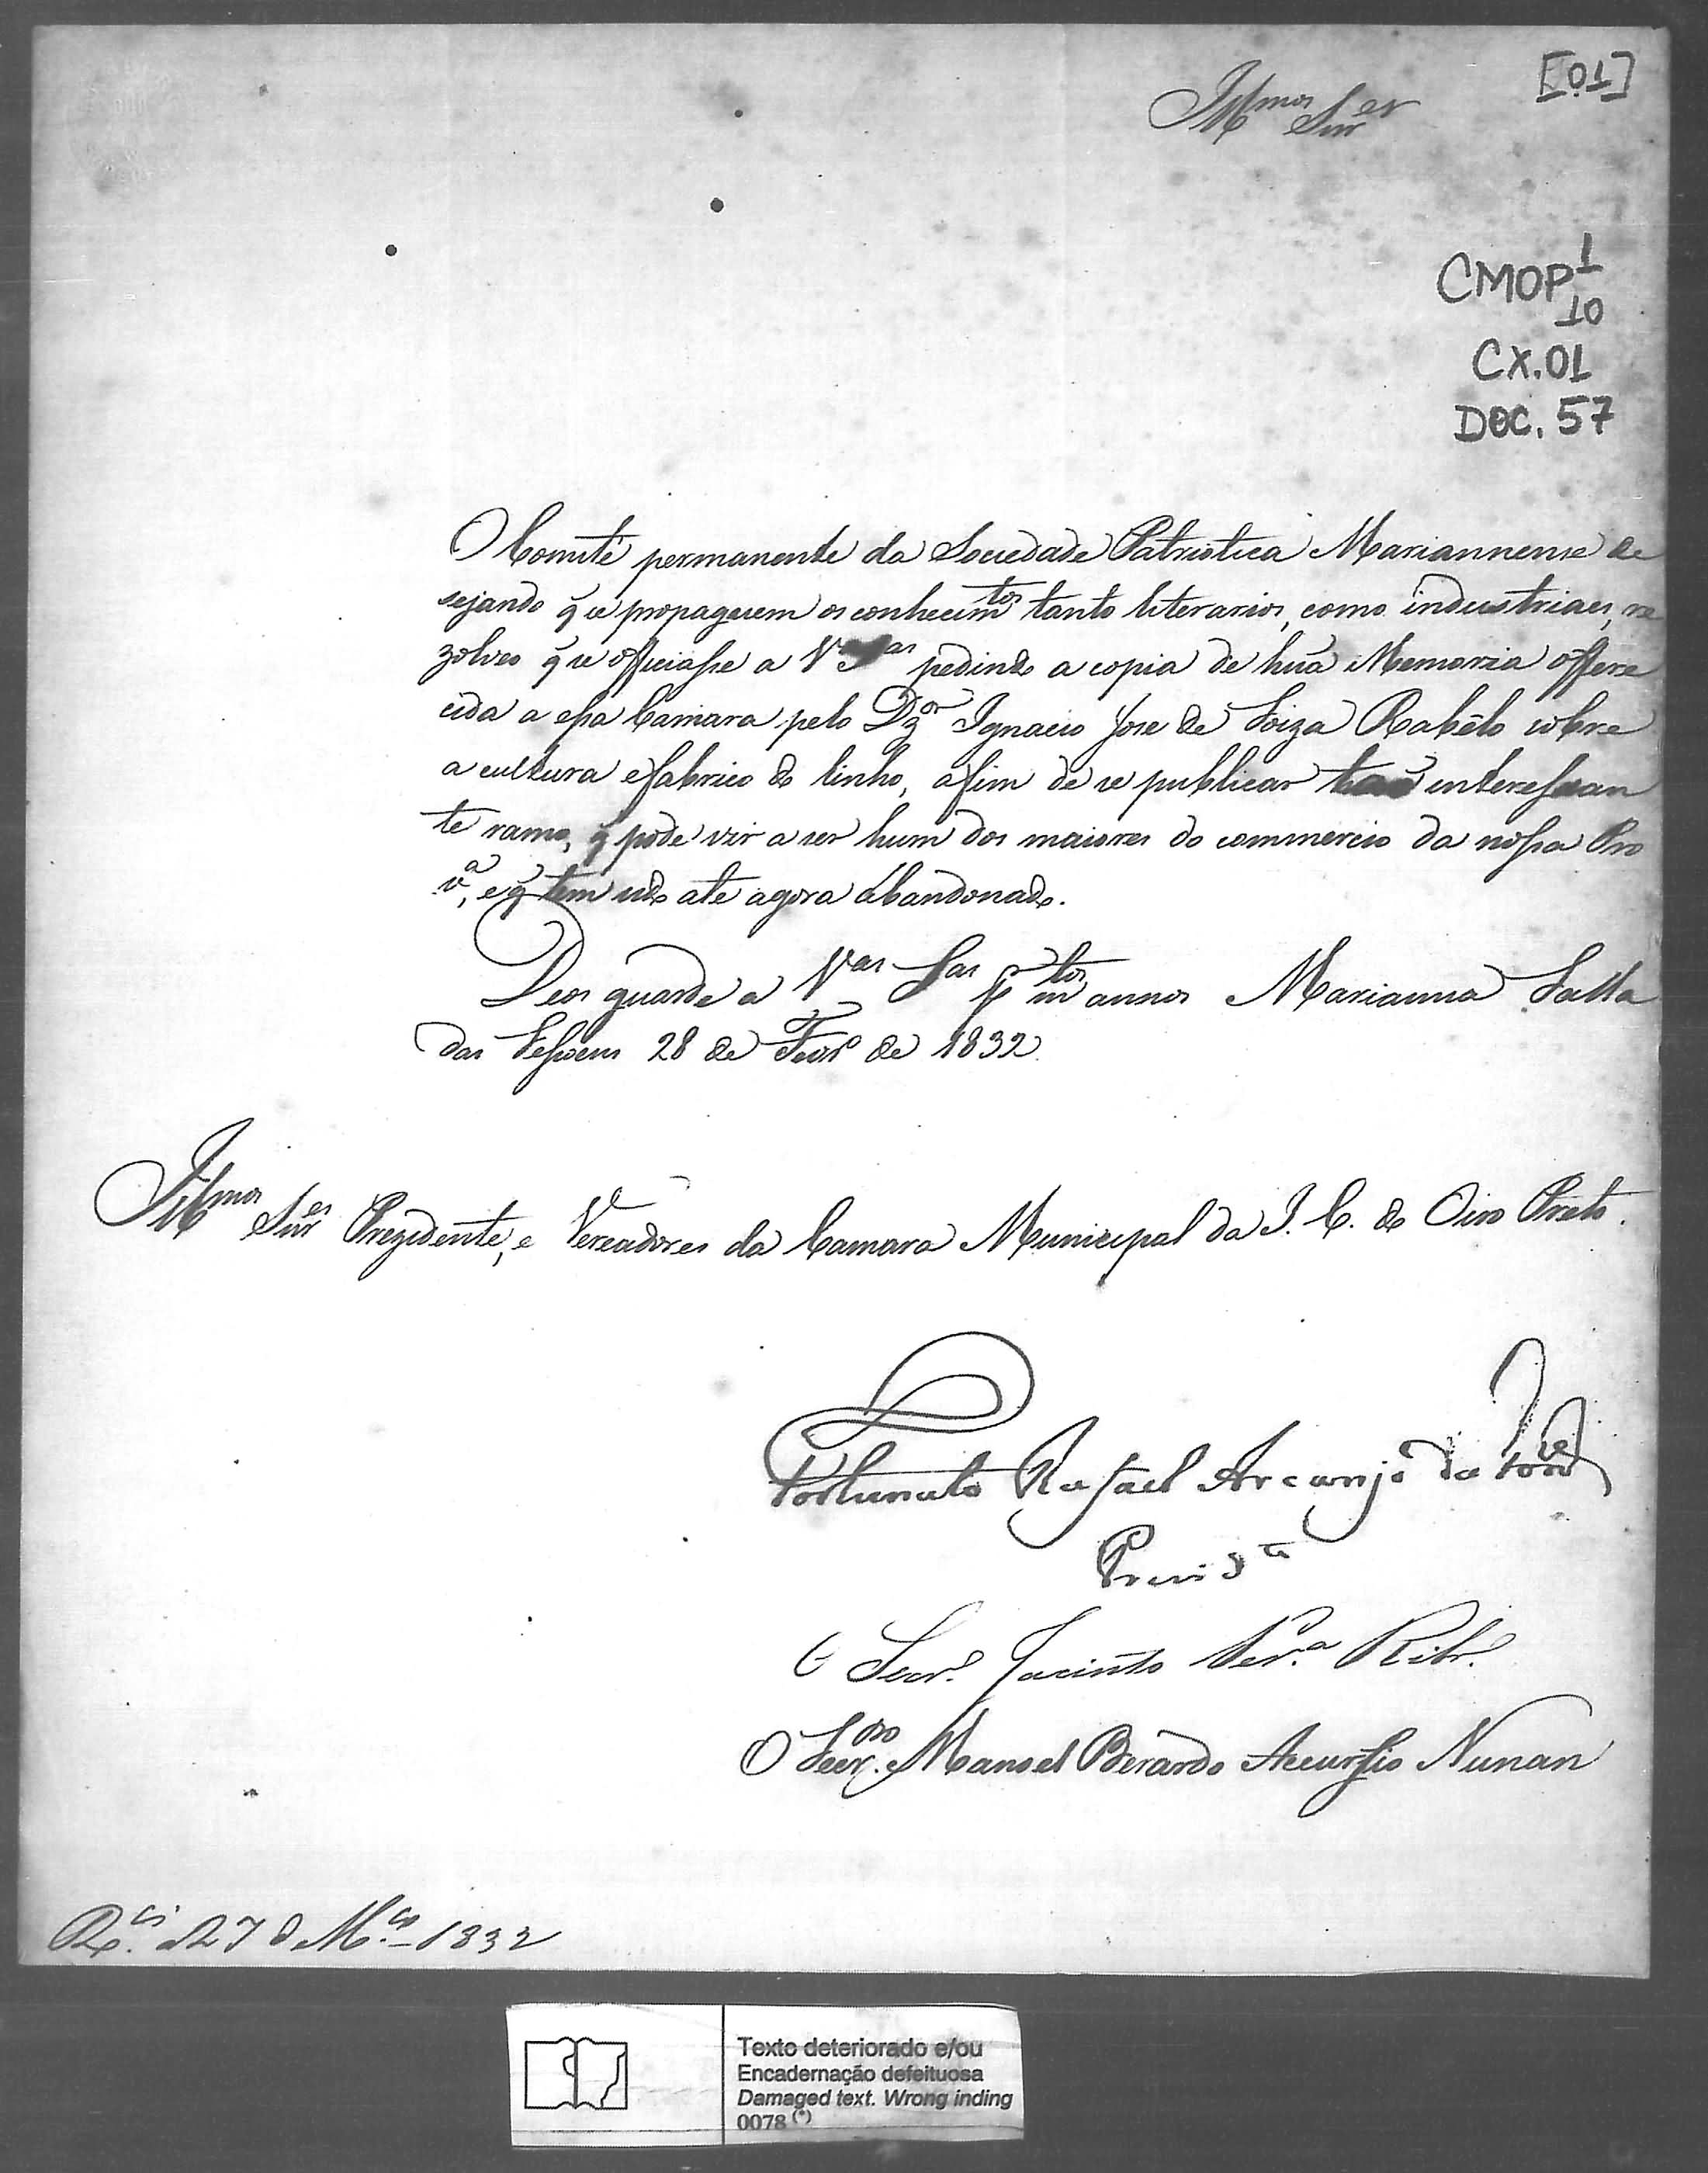 [01]
Illmos Snres
CMOP 1
10
CX.01
DOC. 57
O Comité permanente da Sociedade Patriotica Mariannense de
sejando q̃ se propaguem os conhecimtos tanto literarios, como industriaes, re
zolveo q̃ se officiasse a Vas Sas pedindo a copia de hũa Memoria offere
cida a essa Camara pelo Dzor Ignacio Jose de Soiza Rabêlo sobre
a cultura e fabrico do linho, afim de se publicar taõ interessan
te ramo, q̃ pode vir a ser hum dos maiores do commercio da nossa Pro
va, e q̃ tem sido ate agora abandonado.
Deos guarde a Vas Sas pr mtos annos Marianna Salla
das Sessoens 28 de Fevro de 1832
Illmos Snres Prezidente, e Vereadores da Camara Municipal da I. C. do Oiro Preto.
Fortunato Rafael Arcanjo da
Preside
O Secro. Jacinto Per.a Ribro.
O Secro. Manoel Berardo Accursio Nunan
a 27 d Mço 1832
Texto deteriorado e/ou
Encadernação defeituosa
Damaged text. Wrong inding
0078 (*)